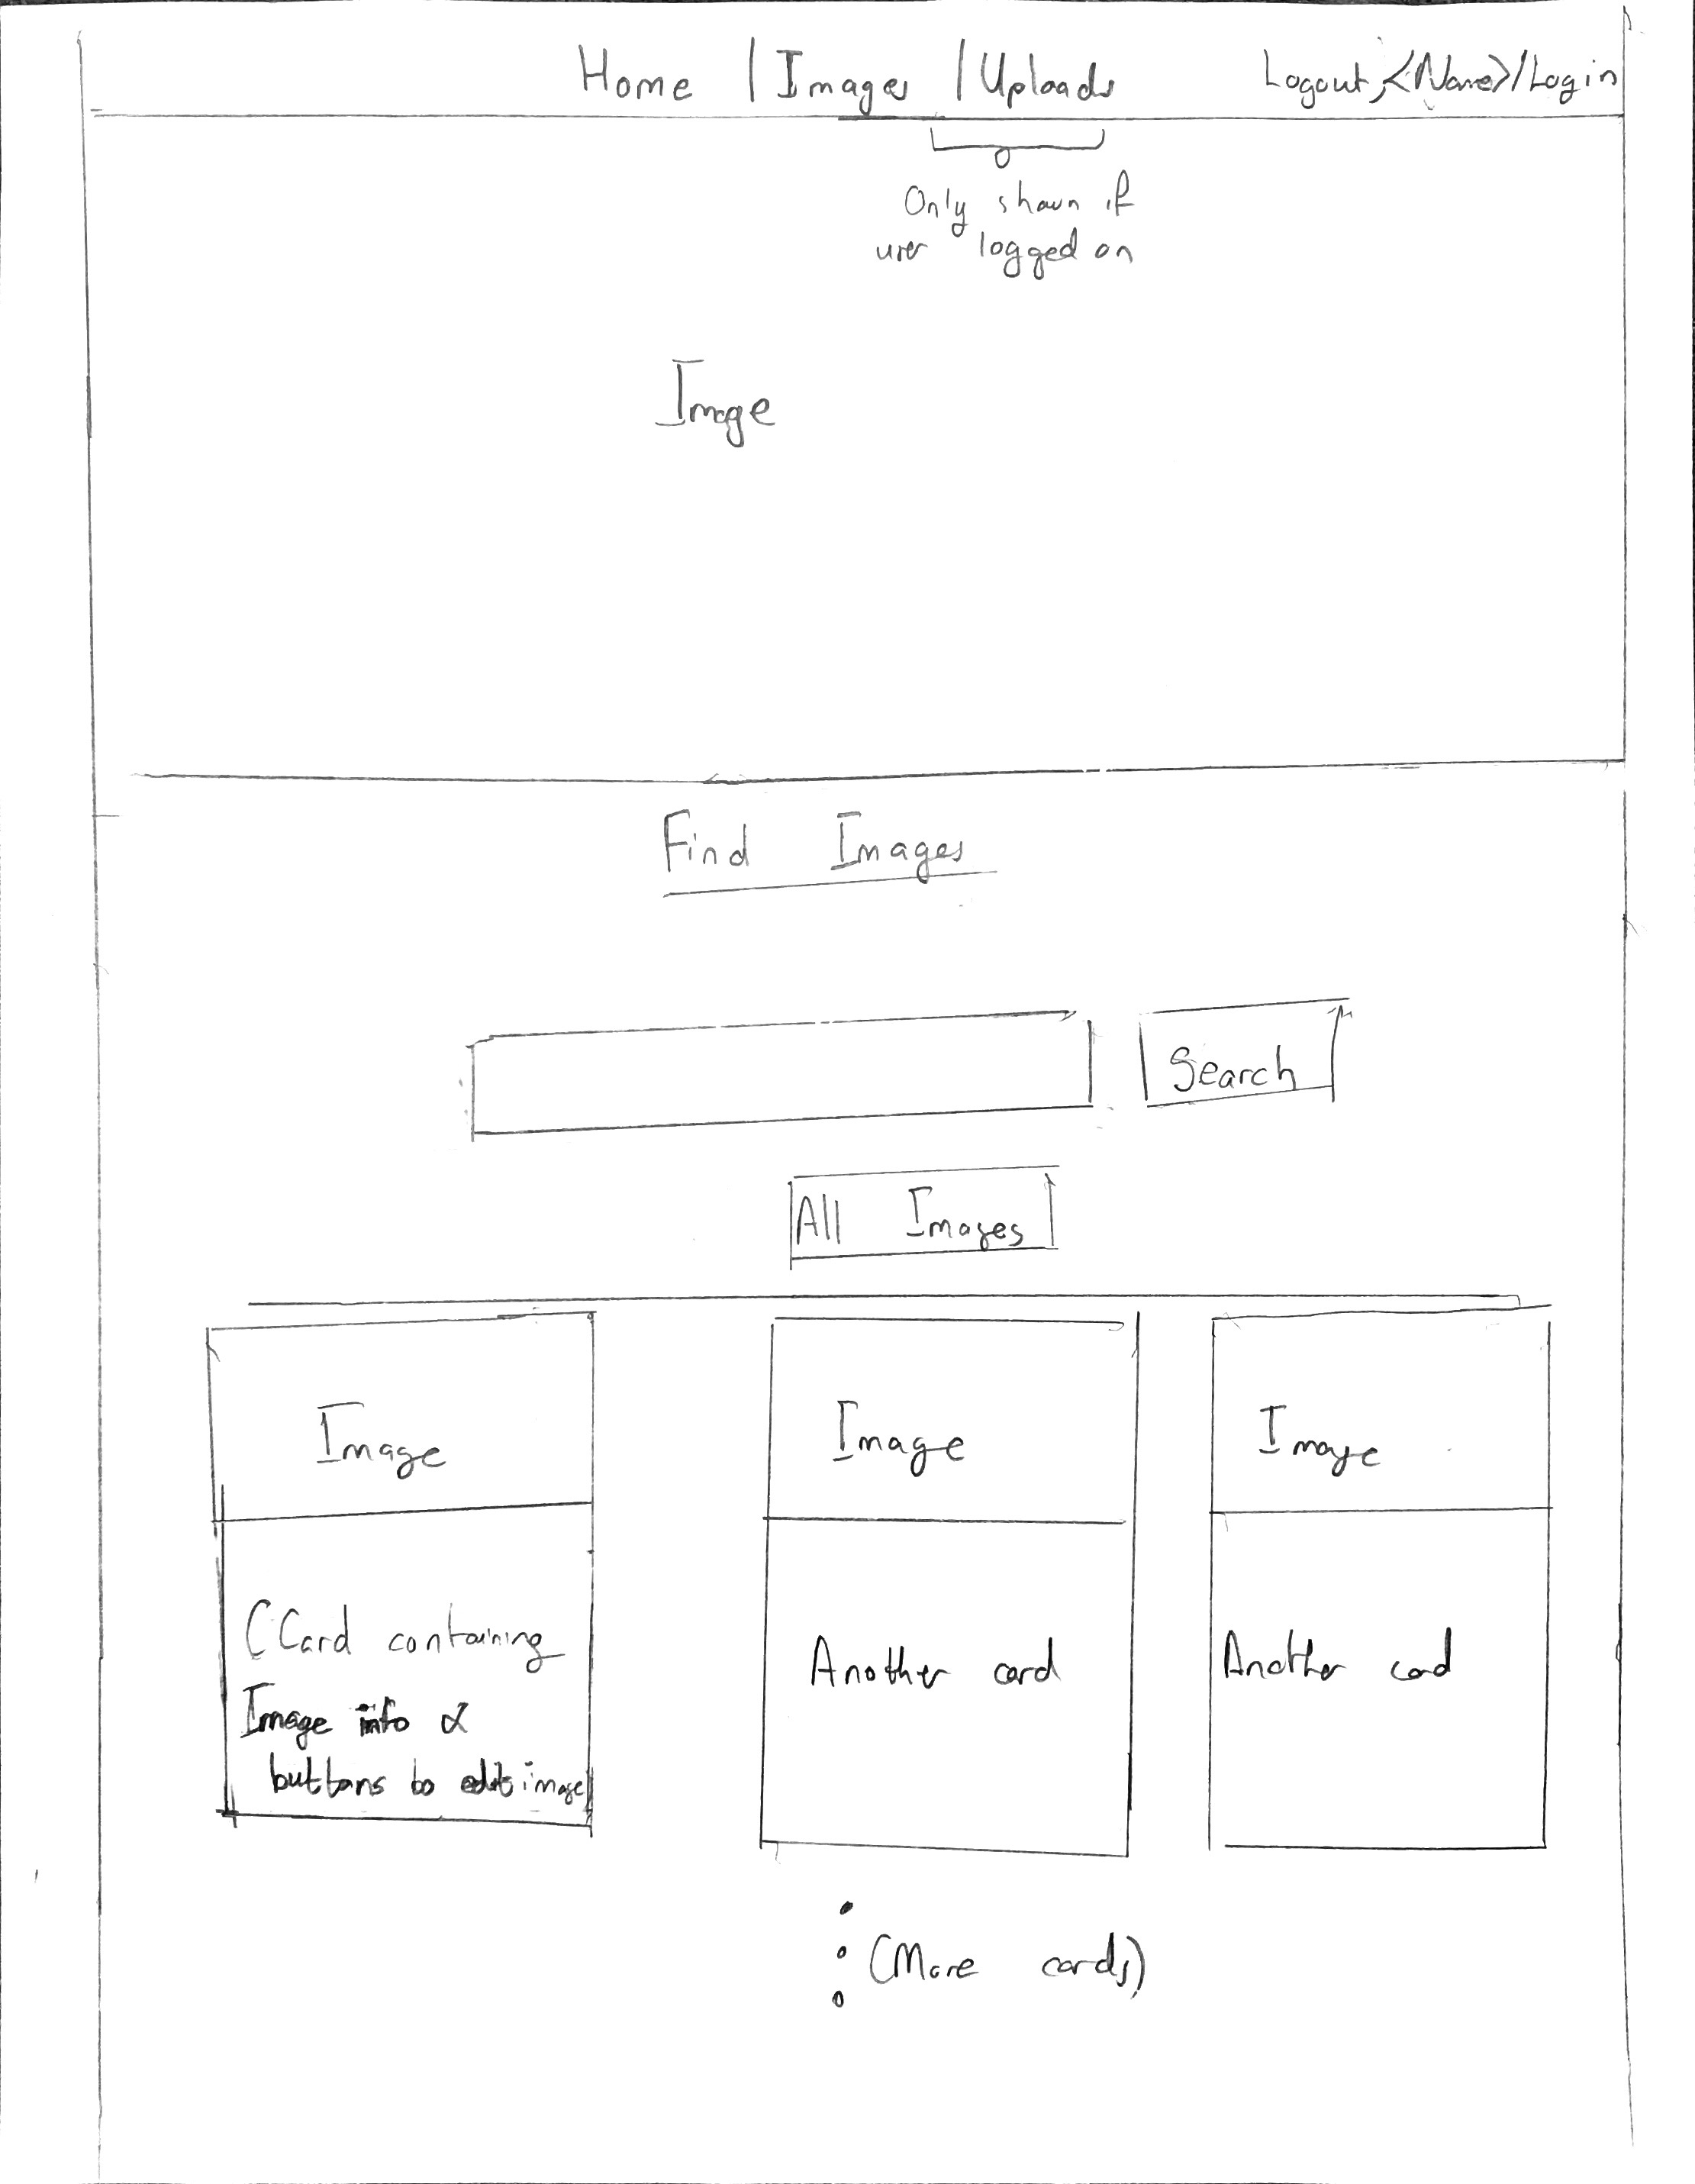 Home | Images | Uploads Logout, <Name>/Login
Only shown if
user logged on
Image
Find Images
Search
All Images
Image Image Image
(Card containing
Image info &
buttons to edit image
Another card
Another card
(More cards)